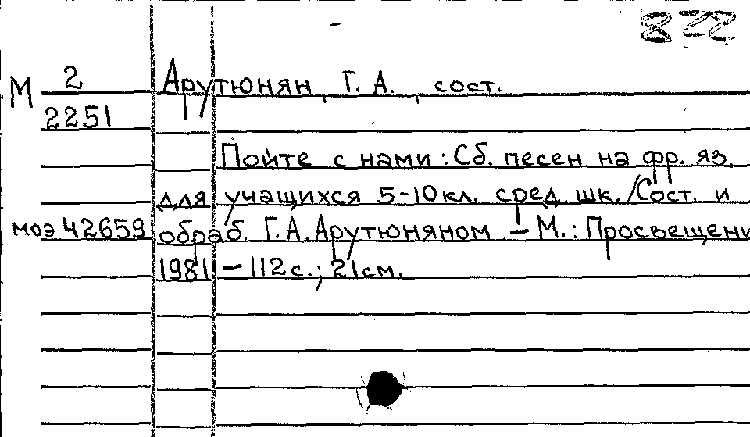 822
М 2 Арутюнян, Г. А., сост.
2251
Пойте с нами: Сб. песен на фр. яз.
для учащихся 5-10 кл. сред. шк./Сост. и
моэ 42659 обраб. Г.А. Арутюняном - М.: Просвещени
1981 - 112 с.; 21 см.